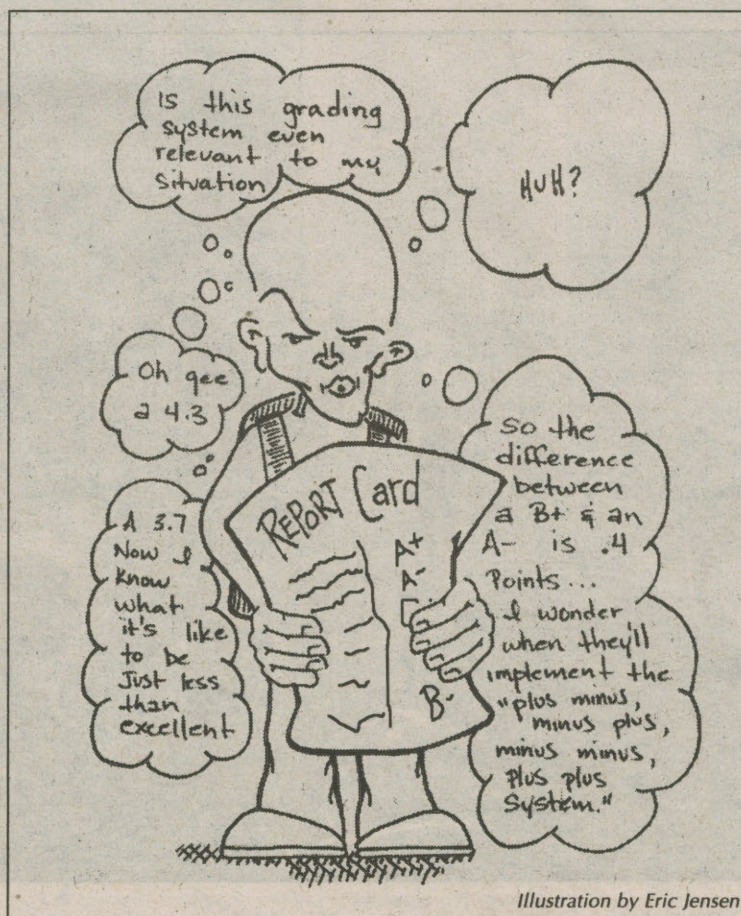 Is this grading
system even
relevant to my
situation
HUH?
Oh gee
a 4.3
A 3.7
Now I
know
what
it's like
to be
Just less
than
excellent
So the
difference
between
a B+ & an
A- is .4
Points...
I wonder
when they'll
implement the
"plus minus,
minus plus,
minus minus,
plus plus
System."
REPORT Card
A+
A-
B-
Illustration by Eric Jensen